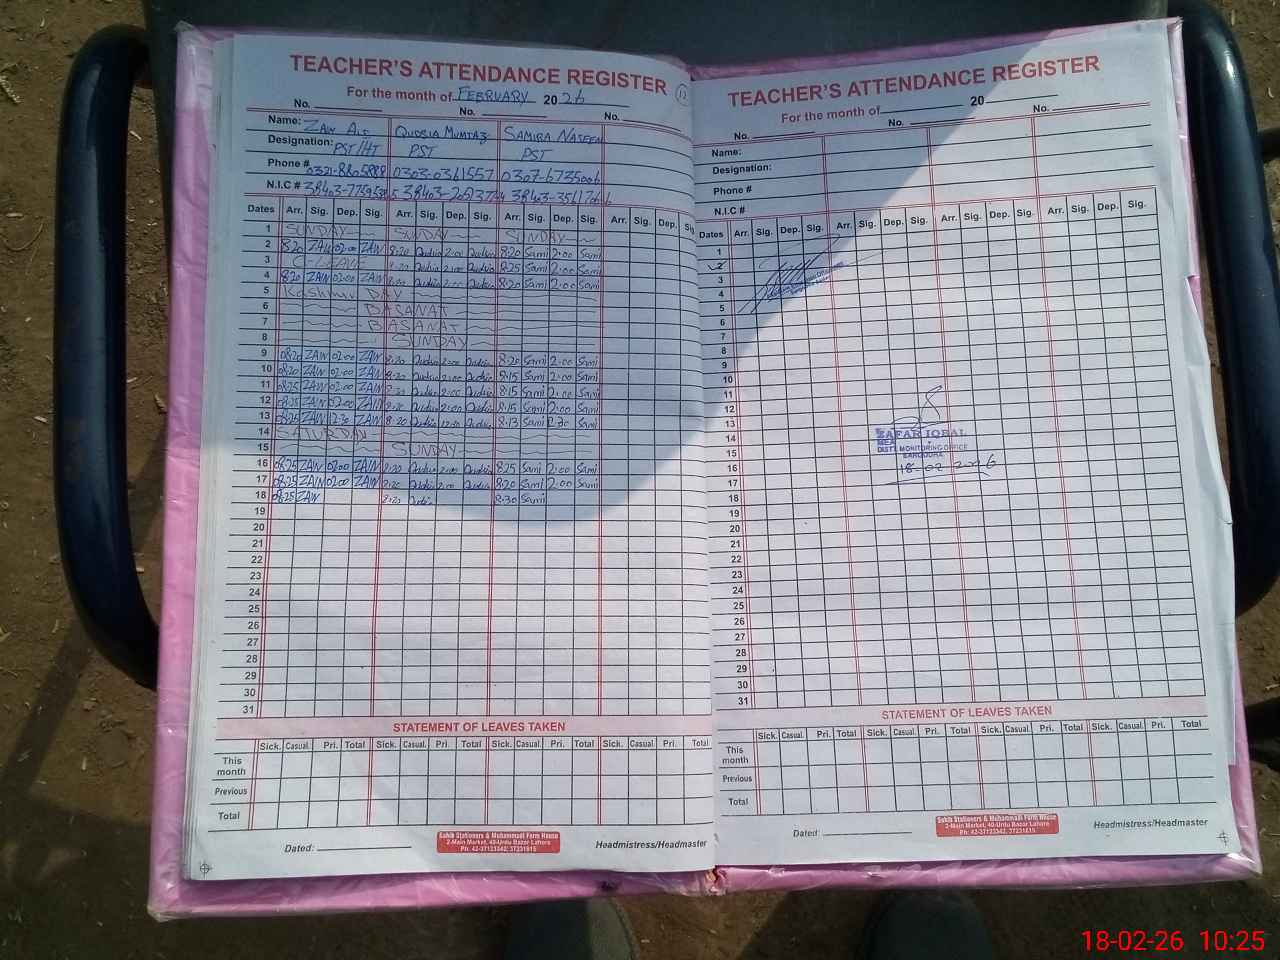 TEACHER'S ATTENDANCE REGISTER
For the month of FEBRUARY 2026
12
No. No. No.
Name: ZAIN ALI QUDSIA MUMTAZ SAMIRA NASEEM
Designation: PST/HT PST PST
Phone # 0321-8805888 0303-0361557 0307-6735006
N.I.C # 38403- 38403- 38403-
Dates Arr. Sig. Dep. Sig. Arr. Sig. Dep. Sig. Arr. Sig. Dep. Sig. Arr. Sig. Dep. Sig.
1 SUNDAY SUNDAY SUNDAY
2 8:20 ZAIN 02:00 ZAIN 8:20 Qudsia 2:00 Qudsia 8:20 Sami 2:00 Sami
3 C-LEAVE 8:20 Qudsia 2:00 Qudsia 8:25 Sami 2:00 Sami
4 8:20 ZAIN 02:00 ZAIN 8:20 Qudsia 2:00 Qudsia 8:20 Sami 2:00 Sami
5 Kashmir DAY
6 BASANAT
7 BASANAT
8 SUNDAY
9 08:20 ZAIN 02:00 ZAIN 8:20 Qudsia 2:00 Qudsia 8:20 Sami 2:00 Sami
10 08:20 ZAIN 02:00 ZAIN 8:20 Qudsia 2:00 Qudsia 8:15 Sami 2:00 Sami
11 08:25 ZAIN 02:00 ZAIN 8:20 Qudsia 2:00 Qudsia 8:15 Sami 2:00 Sami
12 08:25 ZAIN 02:00 ZAIN 8:20 Qudsia 2:00 Qudsia 8:15 Sami 2:00 Sami
13 08:25 ZAIN 12:30 ZAIN 8:20 Qudsia 12:30 Qudsia 8:13 Sami Sami
14 SATURDAY
15 SUNDAY
16 08:25 ZAIN 02:00 ZAIN 8:20 Qudsia 2:00 Qudsia 8:25 Sami 2:00 Sami
17 08:25 ZAIN 02:00 ZAIN 8:20 Qudsia 2:00 Qudsia 8:20 Sami 2:00 Sami
18 08:25 ZAIN 8:20 Qudsia 8:30 Sami
19
20
21
22
23
24
25
26
27
28
29
30
31
STATEMENT OF LEAVES TAKEN
Sick. Casual. Pri. Total Sick. Casual. Pri. Total Sick. Casual. Pri. Total Sick. Casual. Pri. Total
This month
Previous
Total
Dated:
Sahib Stationers & Muhammadi Form House
2-Main Market, 40-Urdu Bazar Lahore
Ph: 42-37123342, 37231615
Headmistress/Headmaster
TEACHER'S ATTENDANCE REGISTER
For the month of 20
No. No. No.
Name:
Designation:
Phone #
N.I.C #
Dates Arr. Sig. Dep. Sig. Arr. Sig. Dep. Sig. Arr. Sig. Dep. Sig. Arr. Sig. Dep. Sig.
1
2
3
4
5
6
7
8
9
10
11
12
13
14
15
16
17
18
19
20
21
22
23
24
25
26
27
28
29
30
31
ZAFAR IQBAL
MEA
DISTT. MONITORING OFFICE
SARGODHA
18-02-2026
STATEMENT OF LEAVES TAKEN
Sick. Casual. Pri. Total Sick. Casual. Pri. Total Sick. Casual. Pri. Total Sick. Casual. Pri. Total
This month
Previous
Total
Dated:
Sahib Stationers & Muhammadi Form House
2-Main Market, 40-Urdu Bazar Lahore
Ph: 42-37123342, 37231615
Headmistress/Headmaster
18-02-26 10:25